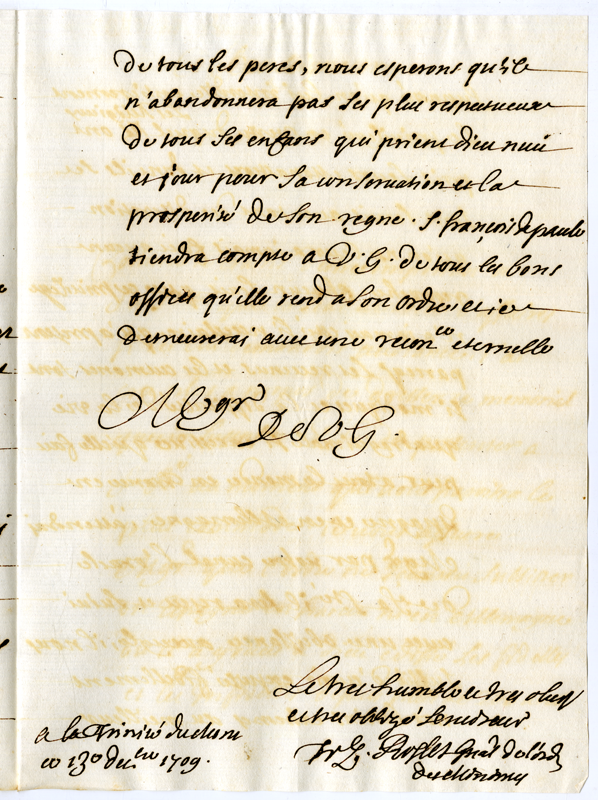 de tous les peres, nous esperons qu'ils
n'abandonnera pas ses plus respectueux
de tous ses enfans qui prient dieu nuit
et jour pour sa conservation et la
prosperité de son regne. s. françois de paule
tiendra compte a V. G. de tous les bons
offices qu'elle rend a son ordre, et je
demeurerai avec une recon^ce eternelle
Mgr
De V G.
Le tres humble et tres obeis^t
et tres obligé serviteur
fr Z. Roslet gnãl de l'ord
des Minimes
a la Trinité du mont
ce 13e decbre 1709.